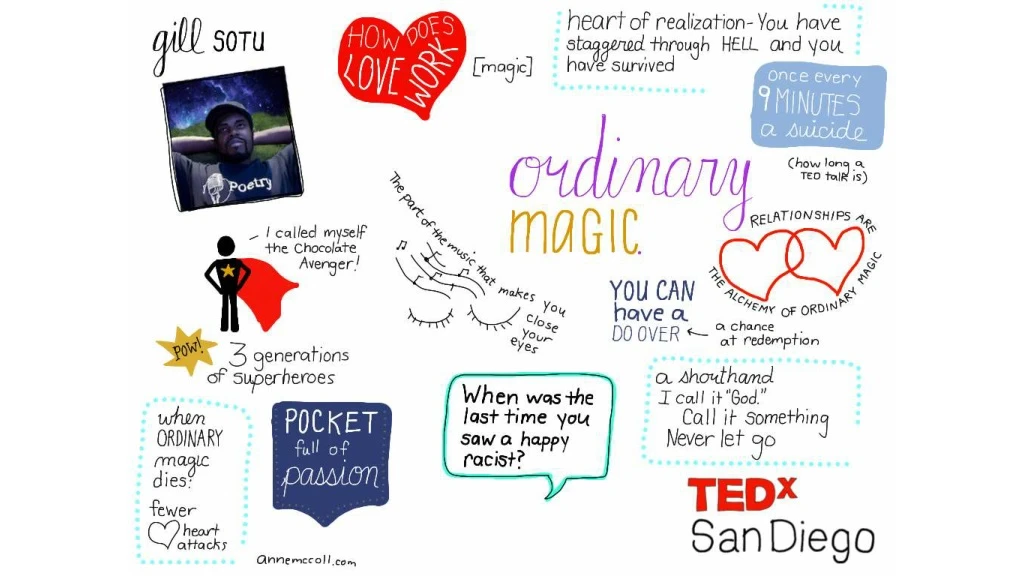 gill SOTU
Poetry
HOW DOES
LOVE
WORK
[magic]
heart of realization- You have
staggered through HELL and you
have survived
once every
9 MINUTES
a suicide
(how long a
TED talk is)
ordinary
MAGIC.
I called myself
the Chocolate
Avenger!
The part of the music that makes you
close
your
eyes
RELATIONSHIPS ARE
THE ALCHEMY OF ORDINARY MAGIC
YOU CAN
have a
DO OVER
a chance
at redemption
POW!
3 generations
of superheroes
when
ORDINARY
magic
dies:
fewer
heart
attacks
POCKET
full of
passion
When was the
last time you
saw a happy
racist?
a shorthand
I call it "God."
Call it something
Never let go
TEDx
San Diego
annemccoll.com